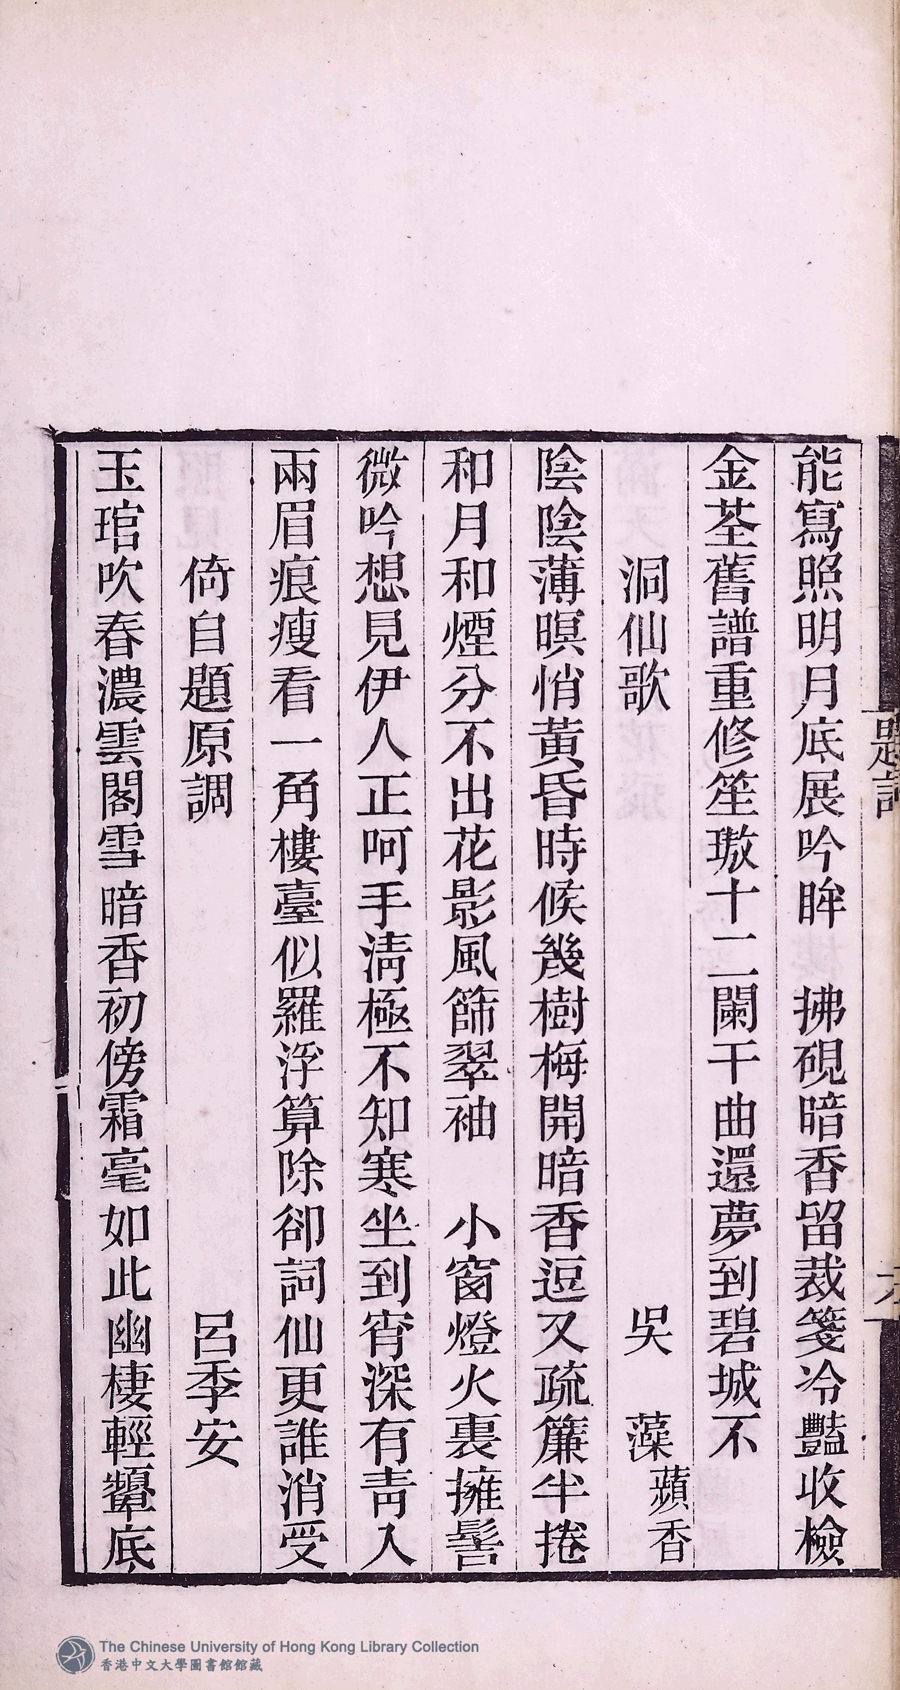 能寫照明月底展吟眸　拂硯暗香留裁箋冷豔收檢
金荃舊譜重修笙璈十二闌干曲還夢到碧城不
洞仙歌　吳　藻蘋香
陰陰薄暝悄黃昏時候幾樹梅開暗香逗又疏簾半捲
和月和煙分不出花影風篩翠袖　小窗燈火裏擁髻
微吟想見伊人正呵手清極不知寒坐到宵深有青入
兩眉痕瘦看一角樓臺似羅浮算除卻詞仙更誰消受
倚自題原調　呂季安
玉琯吹春濃雲閣雪暗香初傍霜毫如此幽棲輕顰底
題詞
The Chinese University of Hong Kong Library Collection
香港中文大學圖書館館藏